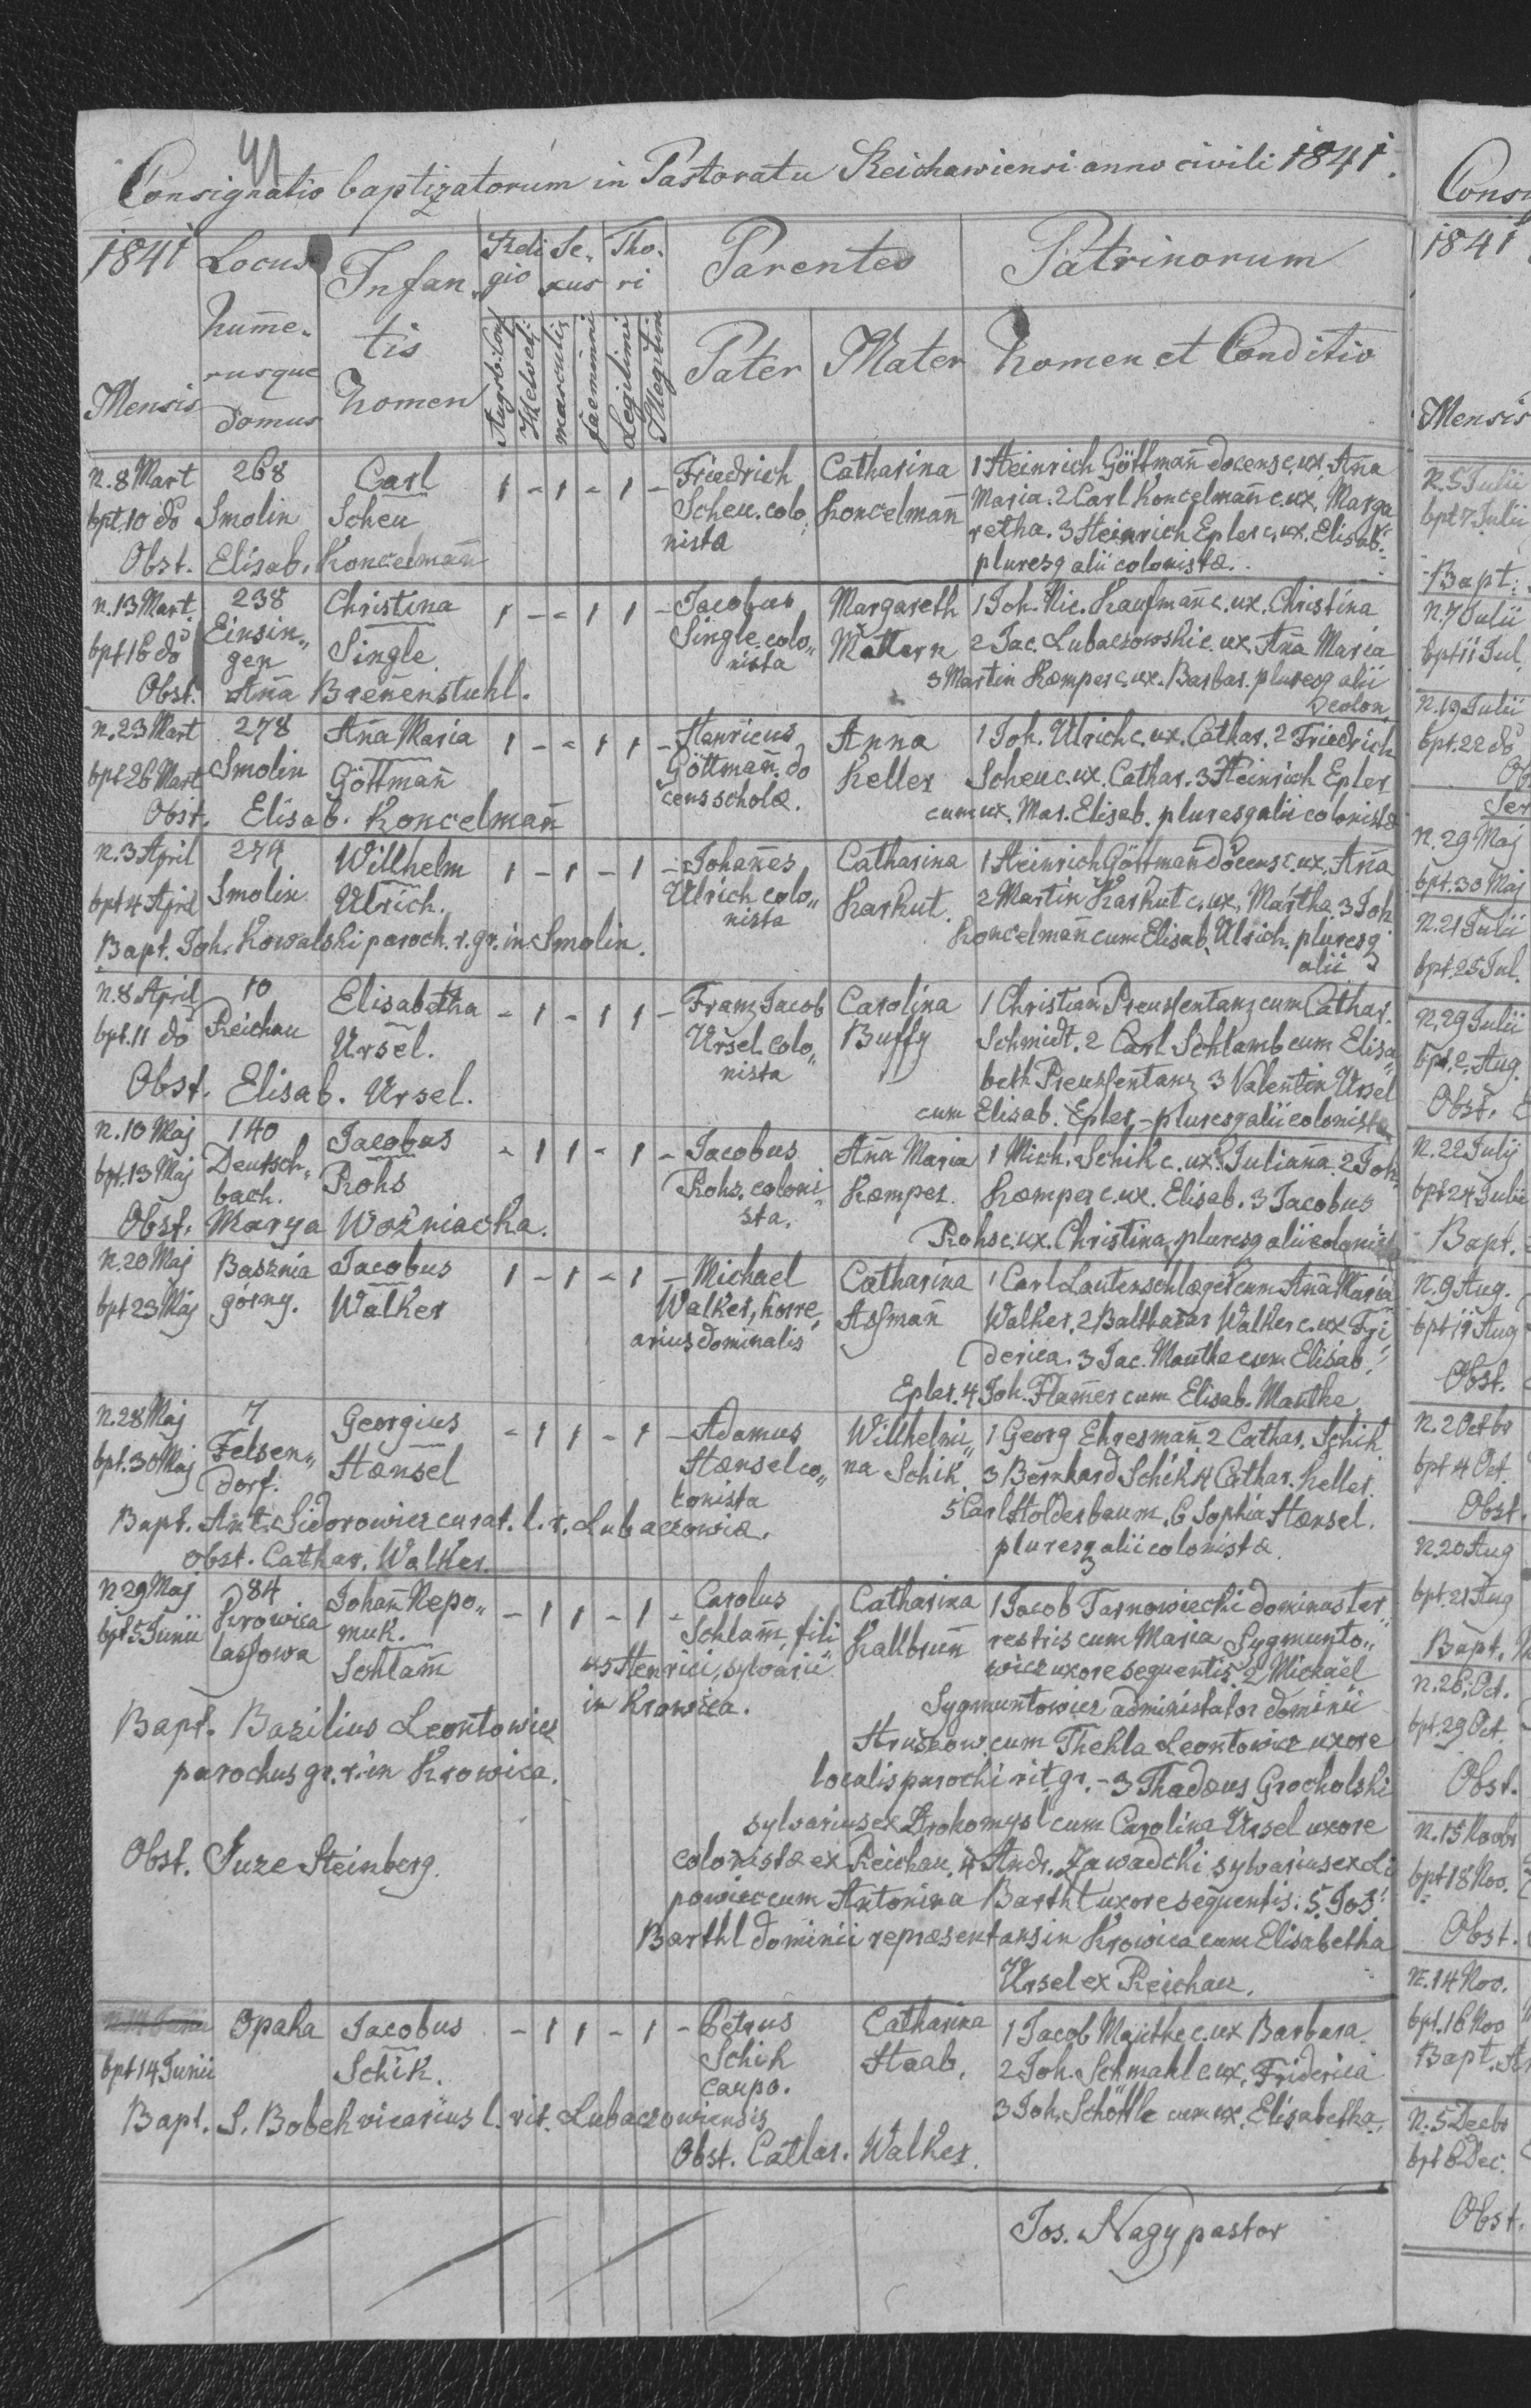 41
Consignatio baptizatorum in Pastoratu Reichawiensi anno civili 1841.
1841 Locus Infan- Reli Se- Tho- Parentes Patrinorum
gio xus ri
Mensis hum̄e- rusque domus tis Nomen Augsb: Conf Helveti masculis faeminini Legitimi Illegitim Pater Mater Nomen et Conditio
n. 8 Mart 268 Carl 1 - 1 - 1 - Friedrich Catharina 1 Heinrich Göttmañ docens c. ux. Aña
bpt. 10 do Smolin Scheu Scheu. colo Koncelmañ Maria. 2 Carl Koncelmañ c. ux. Marga
nista retha. 3 Heinrich Epler c. ux. Elisab.
Obst. Elisab. Koncelmañ pluresq alii colonistæ.
n. 13 Mart 238 Christina 1 - - 1 1 - Jacobus Margareth 1 Joh. Nic. Kaufmañ c. ux. Christina
bpt 16 do Einsin„ gen Single. Single. colo„ nista Mattern 2 Jac. Lubaczowski c. ux. Aña Maria
3 Martin Kæmper c. ux. Barbar. pluresq alii
Obst. Aña Breñenstuhl. colon
n. 23 Mart 278 Aña Maria 1 - - 1 1 - Henricus Anna 1 Joh. Ulrich c. ux. Cathar. 2 Friedrich
bpt 26 Mart Smolin Göttmañ Göttmañ. do Keller Scheu c. ux. Cathar. 3 Heinrich Epler
cens scholæ. cum ux. Mar. Elisab. pluresq alii colonistæ
Obst. Elisab. Koncelmañ
n. 3 April 274 Willhelm 1 - 1 - 1 - Johañes Catharina 1 Heinrich Göttmañ docens c. ux. Aña
bpt 4 April Smolin Ulrich. Ulrich colo„ Karkut. 2 Martin Karkut c. ux. Martha 3 Joh
nista Koncelmañ cum Elisab. Ulrich. pluresq
Bapt. Joh. Kowalski paroch. r. gr. in Smolin. alii
n. 8 April 10 Elisabetha - 1 - 1 1 - Franz Jacob Carolina 1 Christian Preussentanz cum Cathar.
bpt. 11 do Reichau Ursel. Ursel. colo„ Buffy Schmidt. 2 Carl Schlamb cum Elisa„
nista beth Preussentanz 3 Valentin Ursel
Obst. Elisab. Ursel. cum Elisab. Epler, - pluresq alii colonistæ
n. 10 Maj 140 Jacobus - 1 1 - 1 - Jacobus Aña Maria 1 Mich. Schik c. ux. Juliaña. 2 Joh.
bpt. 13 Maj Deutsch„ bach. Rohs Rohs. coloni Kæmper. Kæmper c. ux. Elisab. 3 Jacobus
Obst. Marya Woźniacka. sta. Rohs c. ux. Christina, pluresq alii colonistæ
n. 20 Maj Basznia Jacobus 1 - 1 - 1 - Michael Catharina 1 Carl Lautenschlæger cum Aña Maria
bpt 23 Maj górny. Walker Walker, horre, Assmañ Walker. 2 Balthasar Walker c. ux Fri
arius dominalis derica. 3 Jac. Mautke cum Elisab.
Epler. 4 Joh. Flam̄er cum Elisab. Mautke.
n. 28 Maj 7 Georgius - 1 1 - 1 - Adamus Willhelmi„ 1 Georg Ehresmañ 2 Cathar. Schik
bpt. 30 Maj Felsen„ dorf. Hænsel Hænsel co„ na Schik. 3 Bernhard Schik 4 Cathar. Keller.
lonista 5 Carl Holderbaum. 6 Sophia Hænsel.
Bapt. Ant. Sidorowicz curat. l. r. Lubaczowiæ. pluresq alii colonistæ
obst. Cathar. Walker.
n. 29 Maj 84 Johañ Nepo„ - 1 1 - 1 - Carolus Catharina 1 Jacob Tarnowiecki dominus ter„
bpt 5 Junii Krowica muk. Schlam̄, fili Kallbruñ restris cum Maria Sygmunto„
lassowa Schlam̄ us Henrici, sylvarii wicz uxore sequentis. 2 Michael
in Krowica. Sygmuntowicz administator dominii
Bapt. Basilius Leontowicz cum Thekla Leontowicz uxore
parochus gr. r. in Krowica. localis parochi rit. gr. - 3 Thadæus Grocholski
sylvarius ex Drohomysl cum Carolina Ursel uxore
Obst. Suze Steinberg. colonistæ ex Reichau. 4 Andr. Zawadcki sylvarius ex Li
powiec cum Antonina Barthl uxore sequentis. 5. Jos.
Barthl dominii repræsentans in Krowica cum Elisabetha
Ursel ex Reichau.
Opaka Jacobus - 1 1 - 1 - Petrus Catharina 1 Jacob Majutke c. ux Barbara.
bpt 14 Junii Schik. Schik Staab. 2 Joh. Schmahl c. ux. Friderica
caupo. 3 Joh. Schöttle cum ux. Elisabetha.
Bapt. S. Bobek vicarius l. rit. Lubaczowiensis
Obst. Cathar. Walker.
Jos. Nagy pastor
Cons
1841
Mensis
n. 5 Julii
bpt 7 Julii
Bapt:
n. 7 Julii
bpt 11 Jul.
n. 19 Julii
bpt. 22 do
Ob
Ser
n. 29 Maj
bpt. 30 Maj
n. 21 Julii
bpt. 25 Jul.
n. 29 Julii
bpt. 2. Aug.
Obst.
n. 22 July
bpt 24 Julii
Bapt.
n. 9 Aug.
bpt 19 Aug
Obst.
n. 2 Octbr
bpt 4 Oct.
Obst.
n. 20 Aug
bpt. 21 Aug
Bapt.
n. 26. Oct.
bpt. 29 Oct.
Obst.
n. 15 Novbr
bpt 18 Nov.
Obst.
n. 14 Nov.
bpt. 16 Nov
Bapt. A
n. 5 Decbr
bpt 6 Dec.
Obst.